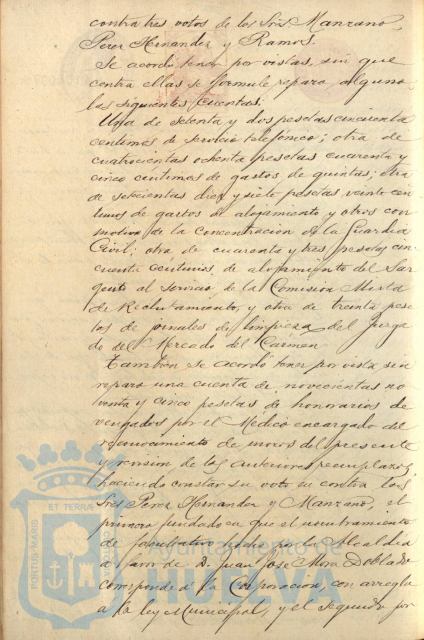 contra tres votos de los Sres Manzano,
Perez Hernandez y Ramos.
Se acordó tener por vistas, sin que
contra ellas se formule reparo alguno
las siguientes cuentas:
Una de setenta y dos pesetas cincuenta
centimos de servicio telefónico; otra de
cuatrocientas ochenta pesetas cuarenta y
cinco centimos de gastos de quintas; otra
de setecientas diez y siete pesetas veinte cen
timos de gastos de alojamiento y otros con
motivo de la Concentración de la Guardia
Civil; otra de cuarenta y tres pesetas cin
cuenta centimos, de alojamiento del Sar
gento al servicio de la Comision Mixta
de Reclutamiento, y otra de treinta pese
tas de jornales de limpieza del Juzga
do del Mercado del Carmen
Tambien se acordó tener por vista sin
reparo una cuenta de novecientas no
venta y cinco pesetas de honorarios de
vengados por el Médico encargado del
reconocimiento de mozos del presente
y revision de los anteriores reemplazos,
haciendo constar su voto en contra los
Sres Perez Hernandez y Manzano, el
primero fundado en que el nombramiento
de facultativo hecho por la Alcaldia
a favor de D. Juan José Mora Doblado
corresponde á la Corporacion, con arreglo
a la ley Municipal, y el segundo por
ET TERRÆ
PORTUS MARIS
CUSTODIA
Ayuntamiento de
HUELVA